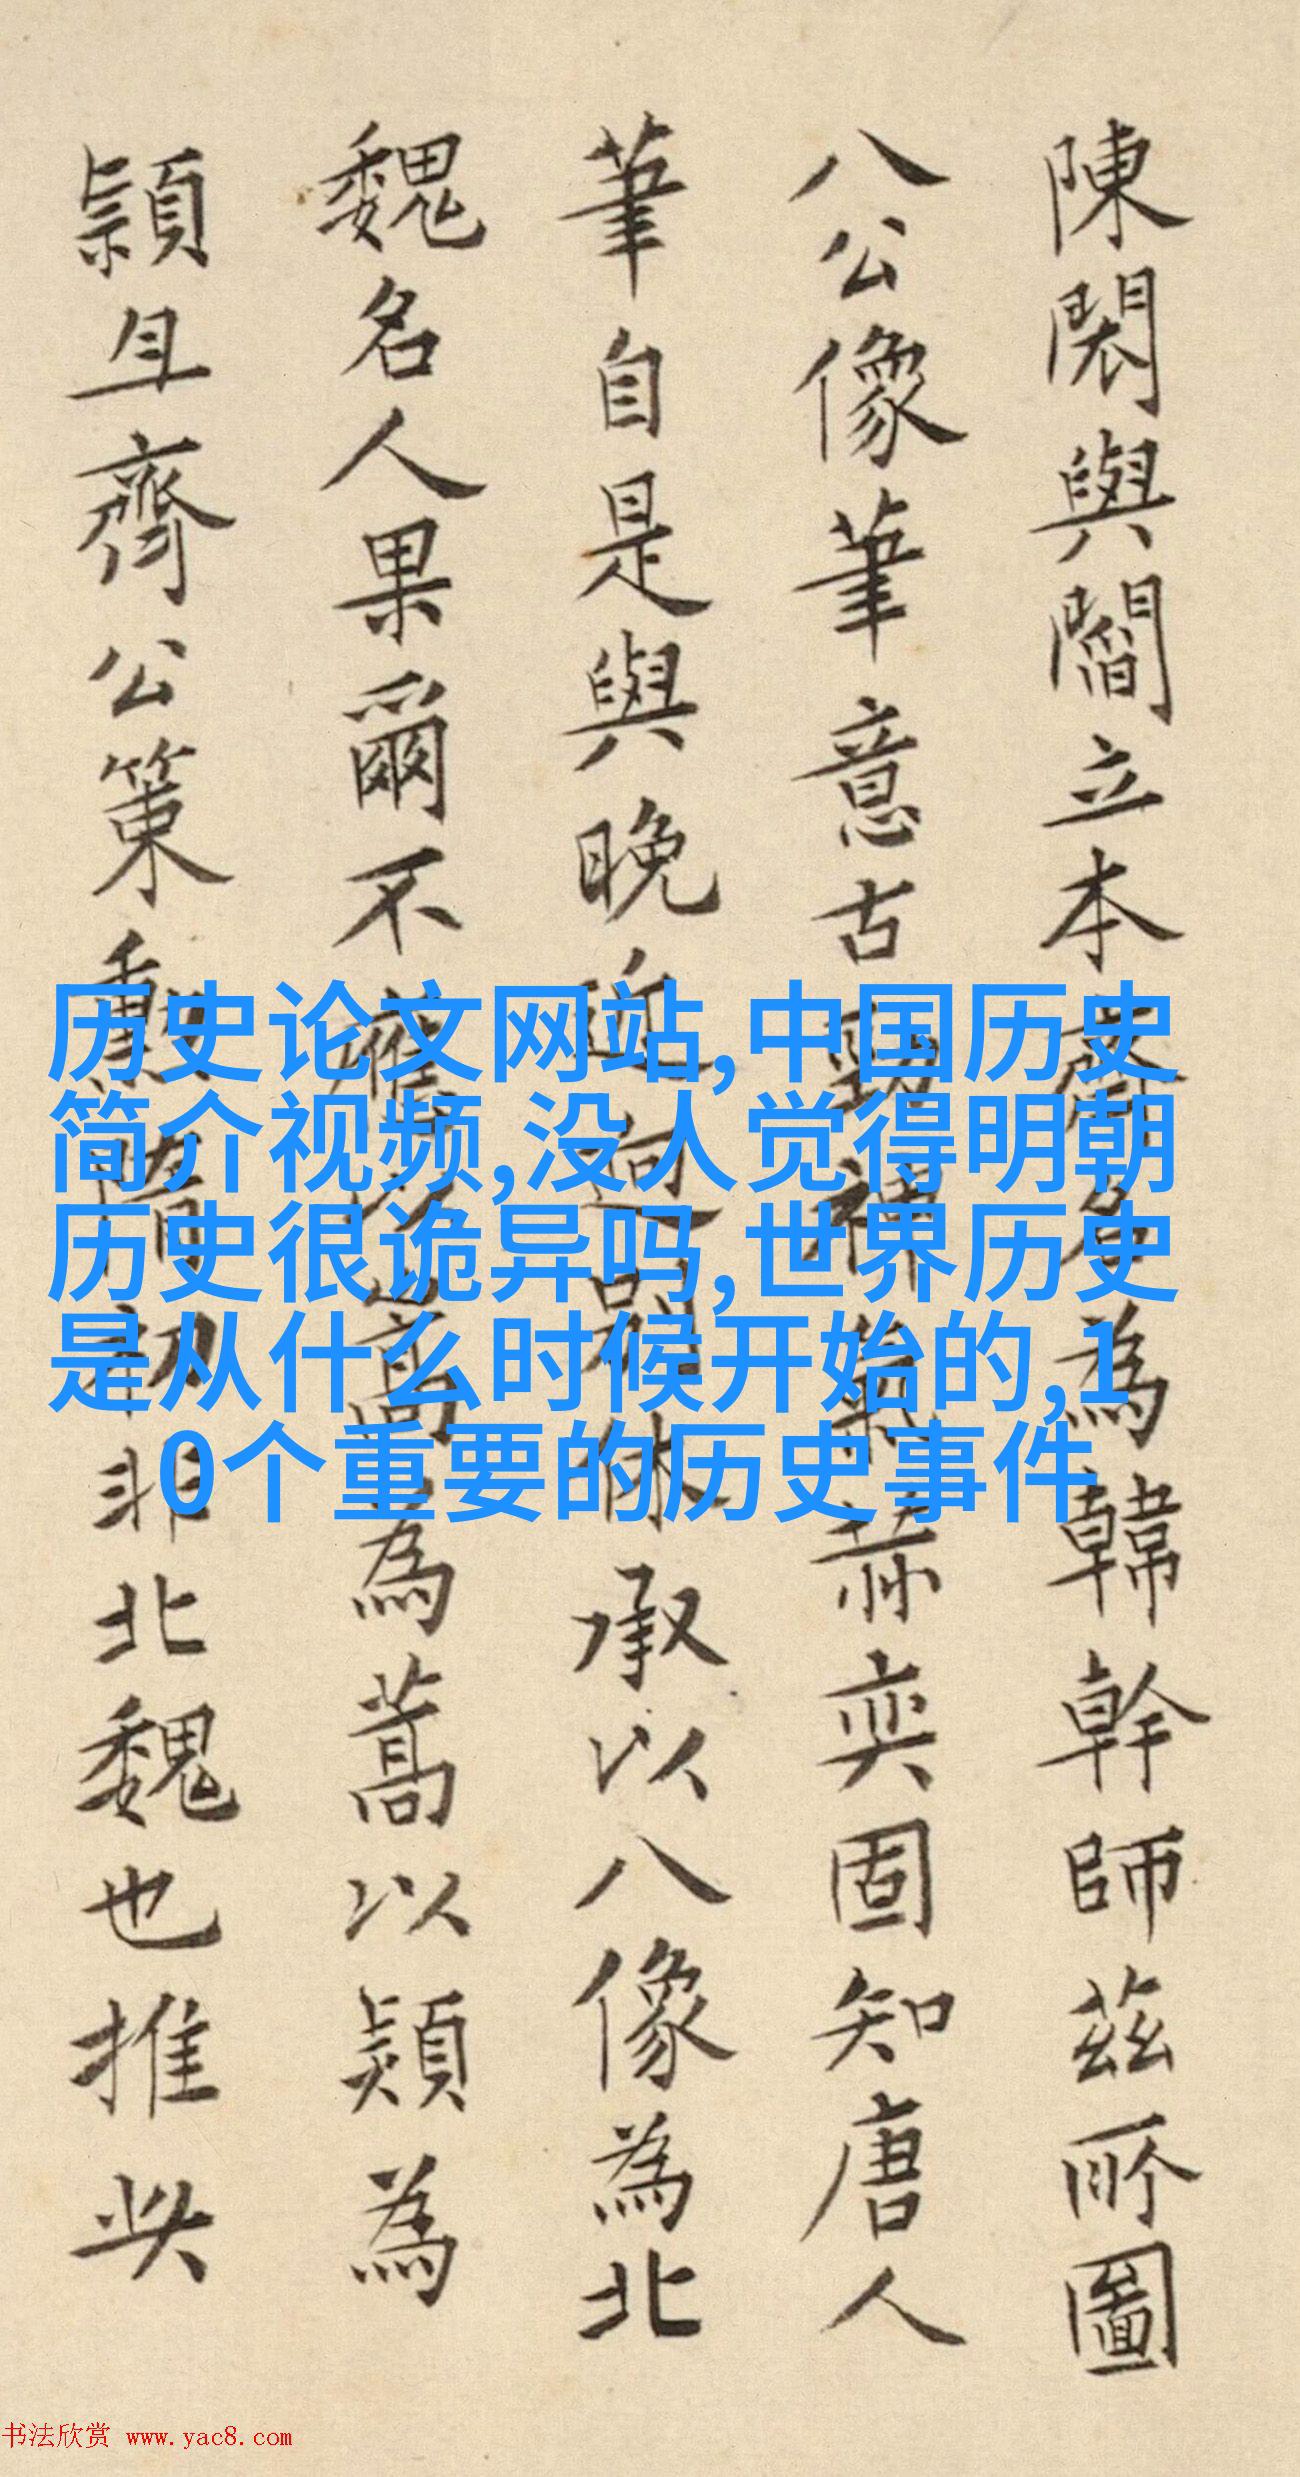 陳閎與閻立本齊名為韓幹師茲所圖
八公像筆意古勁神氣赫奕固知唐人
筆自是與晚近迥別休承以八像為北
魏名人果爾不應以高為蒿以熲為
頴且齊公策勳隋初非北魏也推此
历史论文网站,中国历史
简介视频,没人觉得明朝
历史很诡异吗,世界历史
是从什么时候开始的,1
0个重要的历史事件
书法欣赏 www.yac8.com